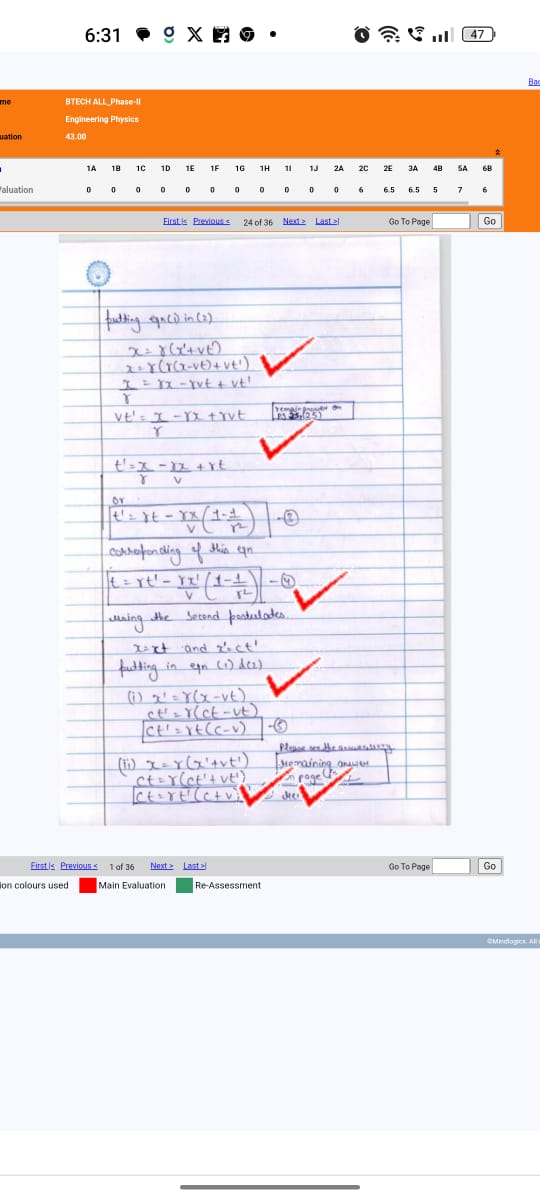 6:31
47
Bac
me
BTECH ALL_Phase-II
Engineering Physics
uation
43.00
1A 1B 1C 1D 1E 1F 1G 1H 1I 1J 2A 2C 2E 3A 4B 5A 6B
/aluation
0 0 0 0 0 0 0 0 0 0 0 6 6.5 6.5 5 7 6
First |< Previous < 24 of 36 Next > Last >| Go To Page Go
putting eqn (1) in (2)
x = γ(x'+vt')
x = γ(γ(x-vt)+vt')
x/γ = γx - γvt + vt'
vt' = x/γ - γx + γvt
remain answer on
pg (25)
t' = x/γ - γx/v + γt
or
t' = γt - γx/v (1-1/γ2) -③
corresponding of this eqn
t = γt' - γx'/v (1-1/γ2) -④
using the second postulates.
x=ct and x'=ct'
putting in eqn (1) & (2)
(i) x' = γ(x-vt)
ct' = γ(ct-vt)
ct' = γt(c-v) -⑤
Please see the
(ii) x = γ(x'+vt')
remaining answer
ct = γ(ct'+vt')
on page
ct = γt'(c+v)
First |< Previous < 1 of 36 Next > Last >| Go To Page Go
ion colours used Main Evaluation Re-Assessment
©Mindlogicx. All